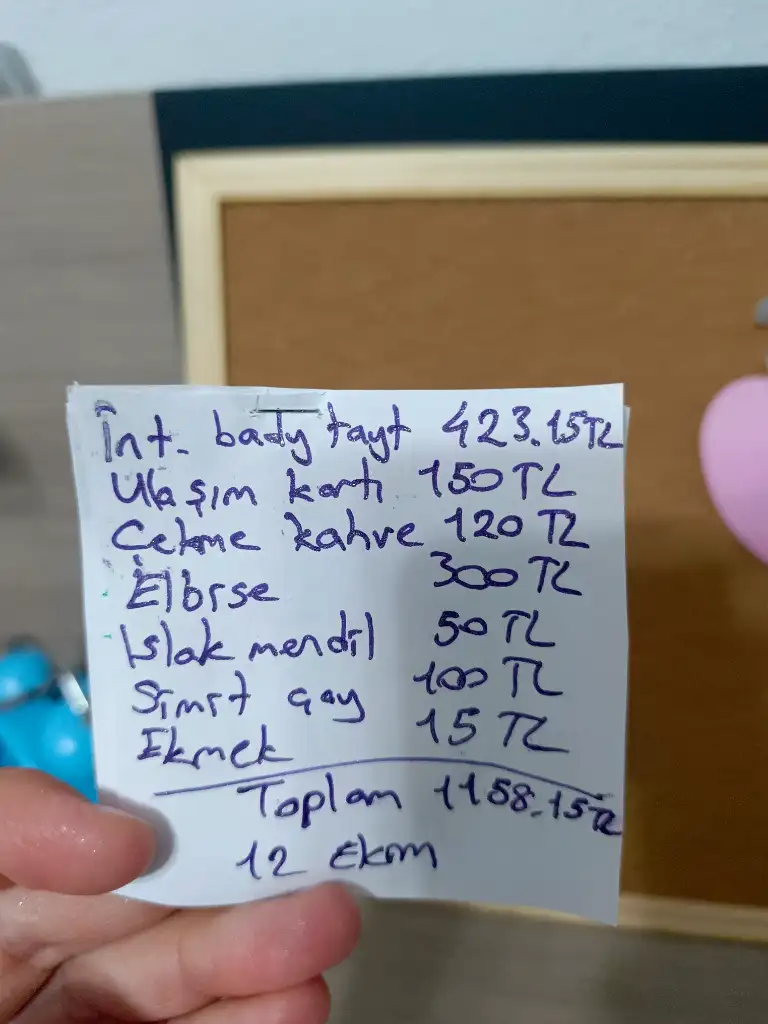 İnt. bady tayt 423.15TL
Ulaşım kartı 150 TL
Çekme kahve 120 TL
Elbise 300 TL
Islak mendil 50 TL
Simit çay 100 TL
Ekmek 15 TL
Toplam 1158.15TL
12 Ekim